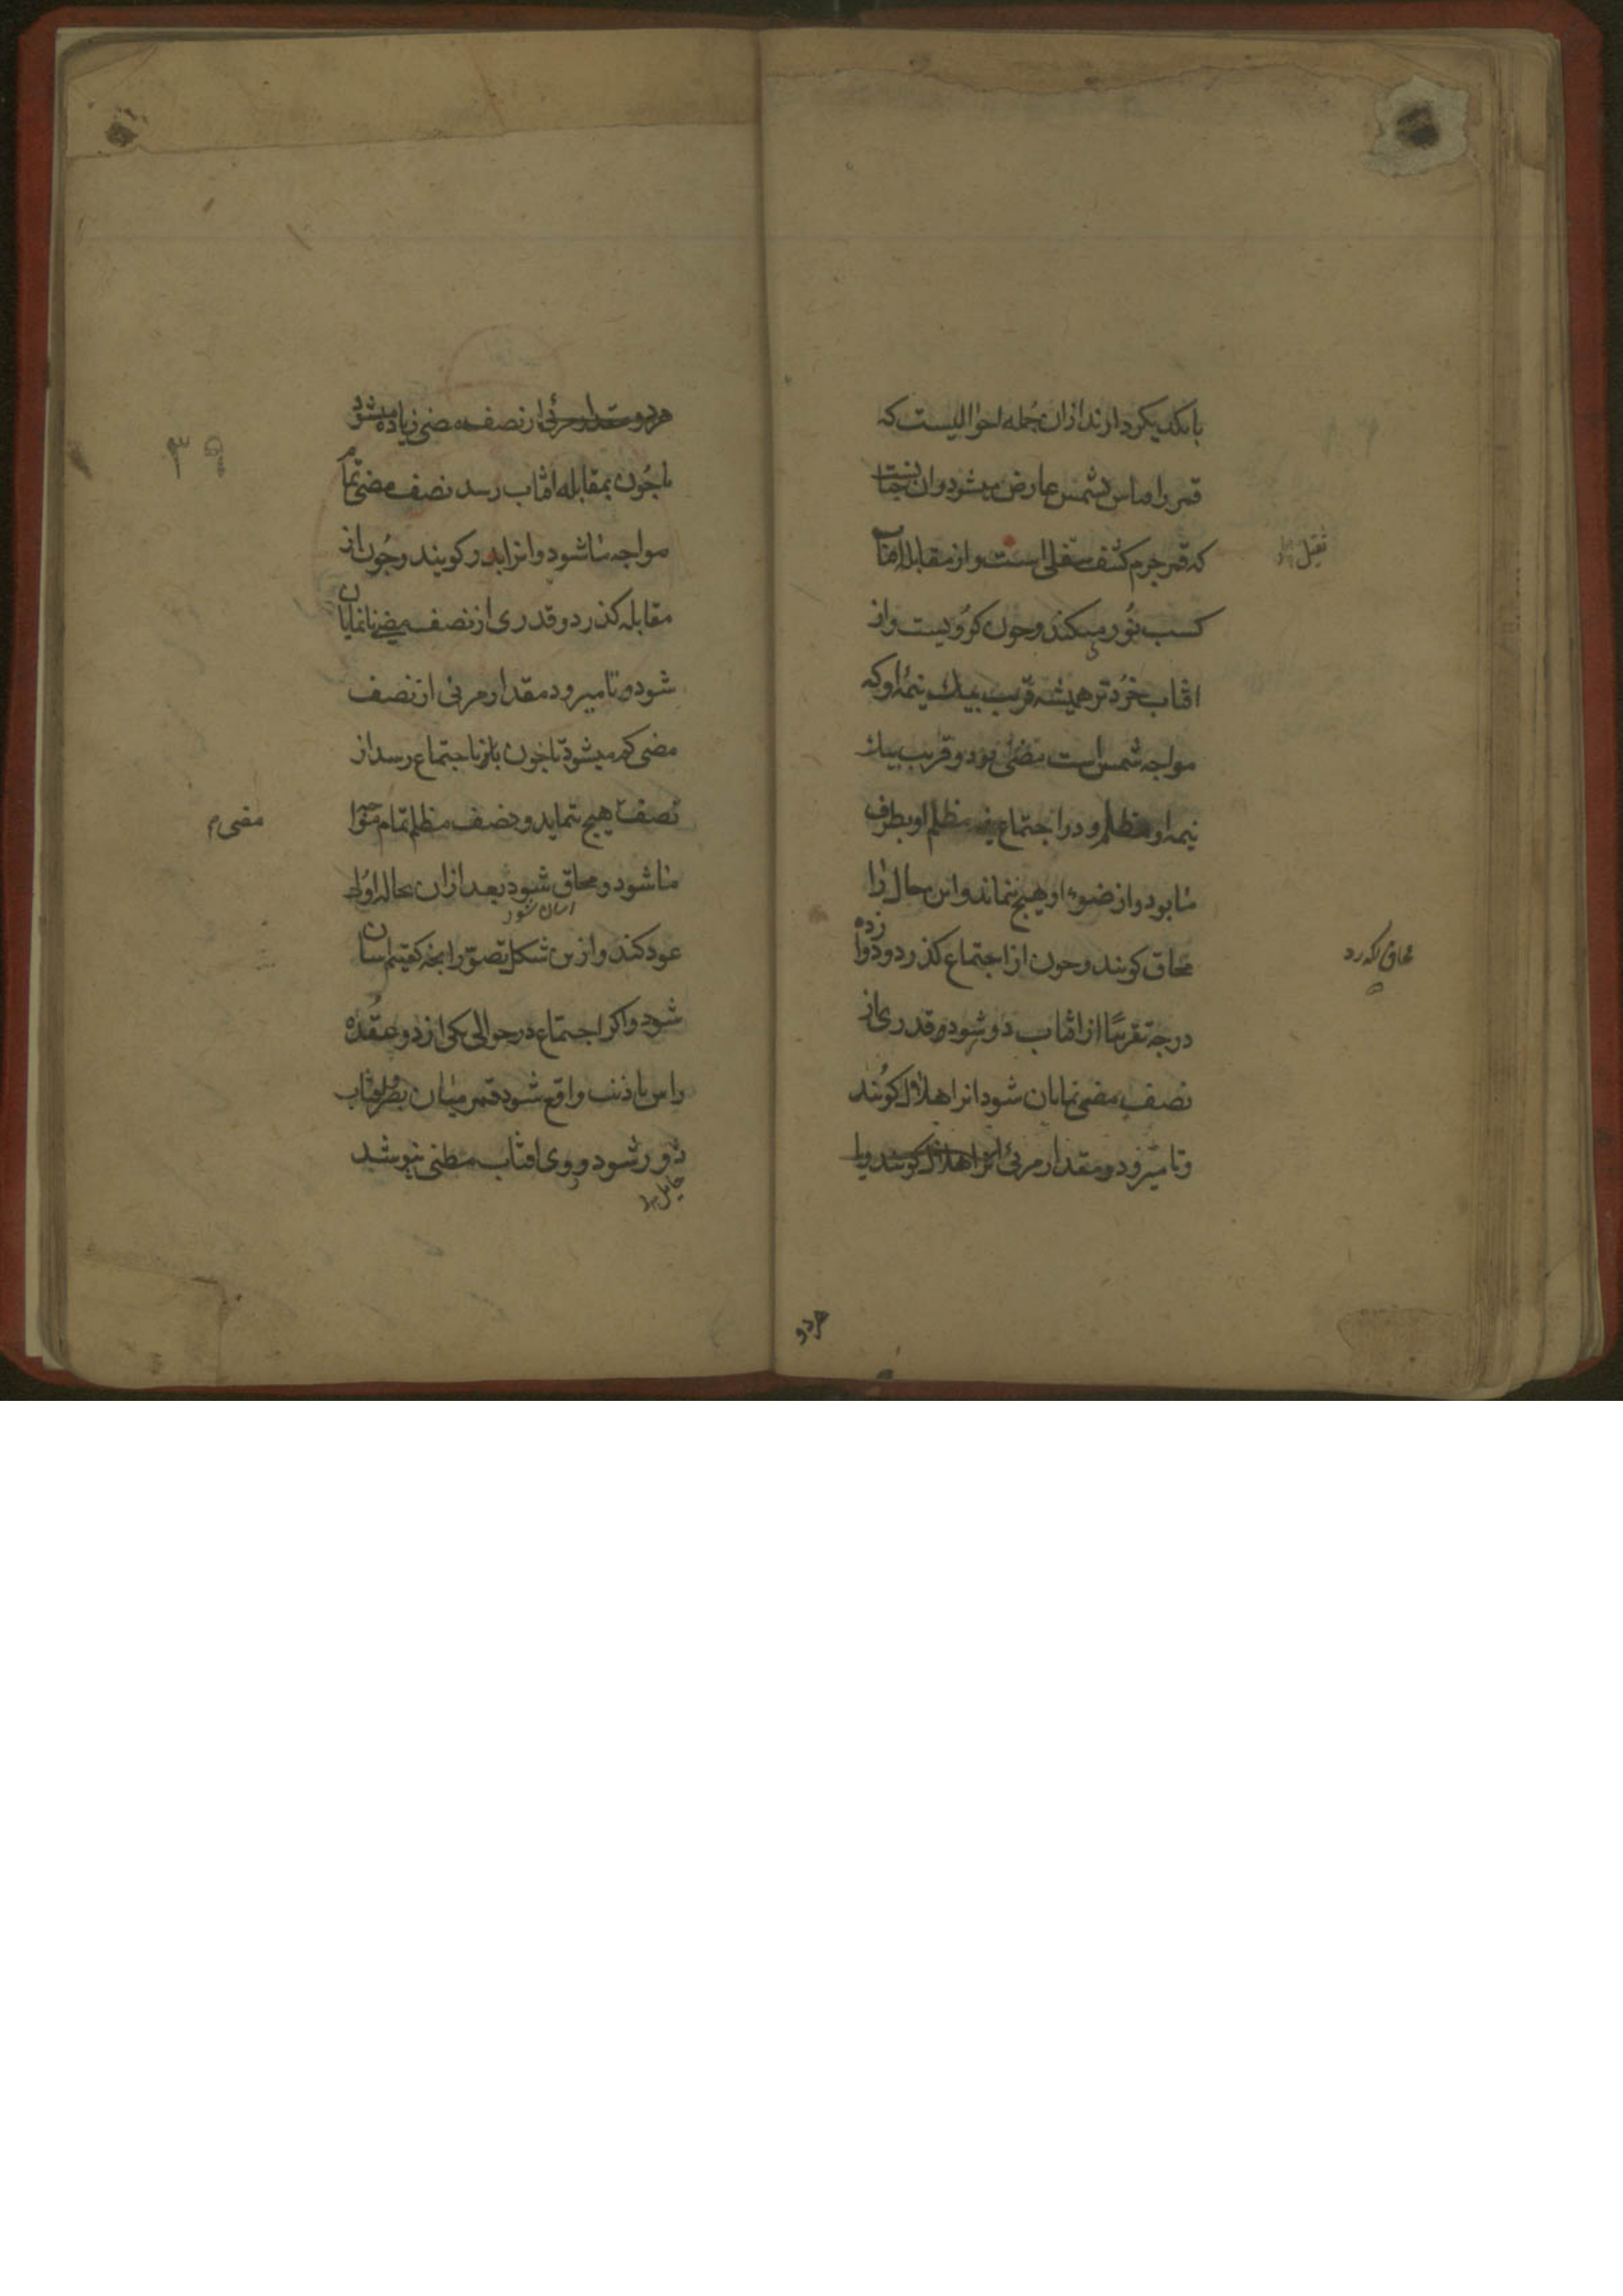 با یکدیگر دارند از ان جمله احوالیست که
قمر را بقیاس بشمس عارض میشود و ان چنانست
که قمر جرم کثیف سفلی است و از مقابله افتاب
ثقیل
کسب نور میکند و چون کرویست و از
افتاب خردتر همیشه قریب بیک نیمه او که
مواجه شمس است مضئ بود و قریب بیک
نیمه او مظلم و در اجتماع نیمه مظلم او بطرف
ما بود و از ضوء او هیچ ننماند و این حال را
محاق کویند و چون از اجتماع کذرد و دوازده
محاق
درجه تقریبا از افتاب دور شود و قدری از
نصف مضی نمایان شود انرا هلال کویند
و تا میرود و مقدار مرئی انرا هلال کویند و یا
هر دو
هر دو مقدار مرئی از نصف مضی زیاده میشود
تا چون بمقابله افتاب رسد نصف مضی تمام
۳۹
مواجه ما شود و انرا بدر کویند و چون از
مقابله کذرد و قدری از نصف مضی نانمایان
شود و تا میرود مقدار مرئی از نصف
مضی کم میشود تا چون باز باجتماع رسد از
نصف هیچ ننماید و نصف مظلم تمام مواجه
مضی م
ما شود و محاق شود بعد از ان بحاله اولی
اسان شود
عود کند و ازین شکل تصور انچه کفتیم اسان
شود و اکر اجتماع در حوالی یکی از دو عقده
راس یا ذنب واقع شود قمر میان بصر و افتاب
دور شود و روی افتاب بپوشد
حایل